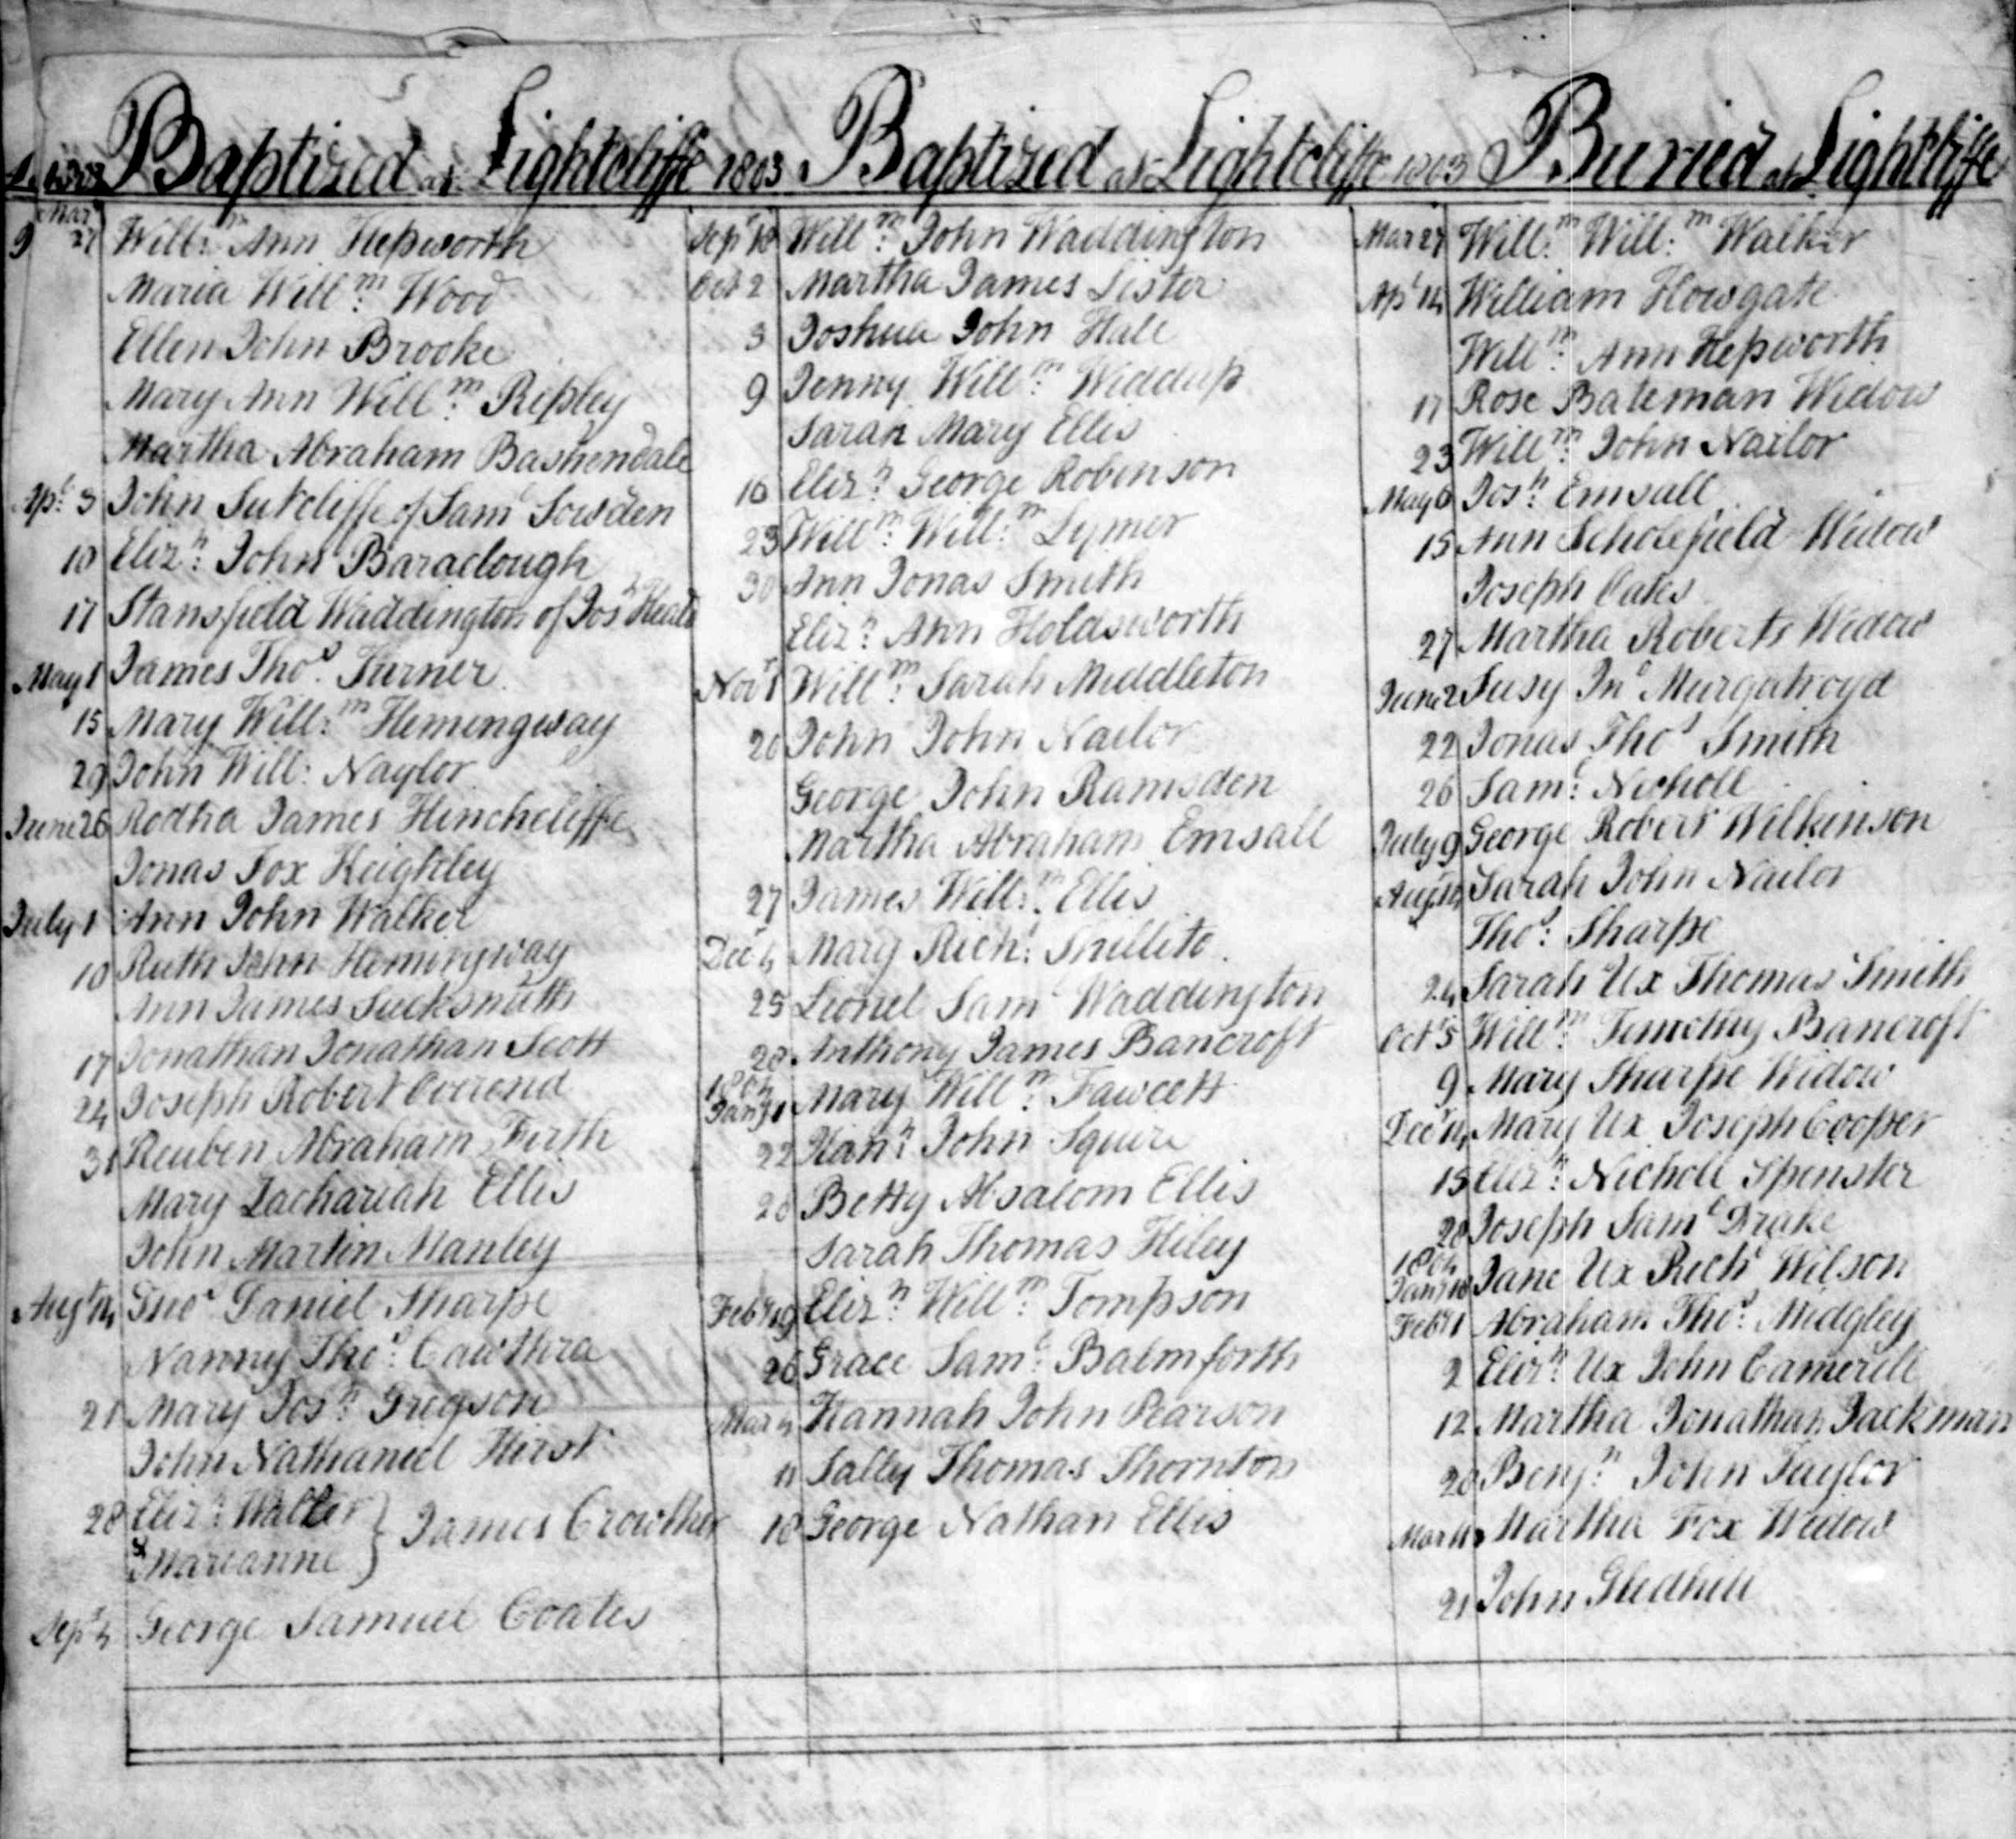 1803 Baptized at Lightcliffe
Mar 27 Will:m Ann Hepworth
Maria Will:m Wood
Ellen John Brooke
Mary Ann Will:m Ripley
Martha Abraham Bashendale
Apl: 3 John Sutcliffe of Saml Sowden
10 Eliz:h John Baraclough
17 Stansfield Waddington of Josh
May 1 James Thos. Turner
15 Mary Will:m Hemingway
29 John Will: Naylor
June 26 Rodha James Hinchcliffe
Jonas Fox Keighley
July 1 Ann John Walker
10 Ruth John Hemingway
Ann James Sucksmith
17 Jonathan Jonathan Scott
24 Joseph Robert Overend
31 Reuben Abraham Firth
Mary Zachariah Ellis
John Martin Manley
Augt 14 Daniel Sharpe
Nanny Thos: Cawthra
21 Mary Jos:h Gregson
John Nathaniel Hirst
28 Eliz:h Walker } James Crowther
& Marianne
Sept 4 George Samuel Coates
1803 Baptized at Lightcliffe
Sept 18 Will:m John Waddington
Oct 2 Martha James Lister
3 Joshua John Hall
9 Jenny Will:m Widdup
Sarah Mary Ellis
16 Eliz:h George Robinson
23 Will:m Will:m Lymer
30 Ann Jonas Smith
Eliz:h Ann Holdsworth
Novr 1 Will:m Sarah Middleton
20 John John Nailor
George John Ramsden
Martha Abraham Emsall
27 James Will:m Ellis
Decr 4 Mary Richd: Shillito
25 Lionel Saml Waddington
28 Anthony James Bancroft
1804
Jany 1 Mary Will:m Fawcett
22 Han:h John Squire
26 Betty Absalom Ellis
Sarah Thomas Hiley
Feby 19 Eliz:h Will:m Tompson
26 Grace Saml: Balmforth
Mar 4 Hannah John Pearson
11 Sally Thomas Thornton
18 George Nathan Ellis
1803 Buried at Lightcliffe
Mar 27 Will:m Will:m Walker
Apl 14 William Howgate
Will:m Ann Hepworth
17 Rose Bateman Widow
23 Will:m John Nailor
May 6 Jos:h Emsall
15 Ann Scholefield Widow
Joseph Oates
27 Martha Roberts Widow
June 2 Susy Jno Murgatroyd
22 Jonas Thos Smith
26 Saml: Nicholl
July 9 George Robert Wilkinson
Augt 14 Sarah John Nailor
Thos: Sharpe
24 Sarah Ux Thomas Smith
Octr 5 Will:m Timothy Bancroft
9 Mary Sharpe Widow
Decr 14 Mary Ux Joseph Cooper
15 Eliz:h Nicholl Spinster
28 Joseph Saml Drake
1804
Jany 18 Jane Ux Richd Wilson
Feby 1 Abraham Thos: Midgley
2 Eliz:h Ux John Camerill
12 Martha Jonathan Jackman
20 Benj:n John Taylor
Mar Martha Fox Widow
21 John Gledhill